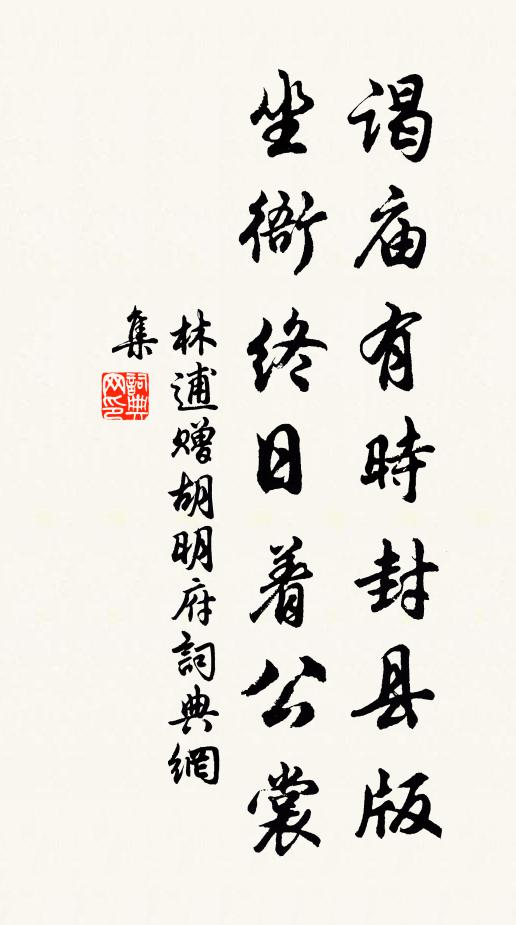 谒庙有時封县版
坐衙终日着公裳
林逋赠胡明府詞典網
集
詞典网印